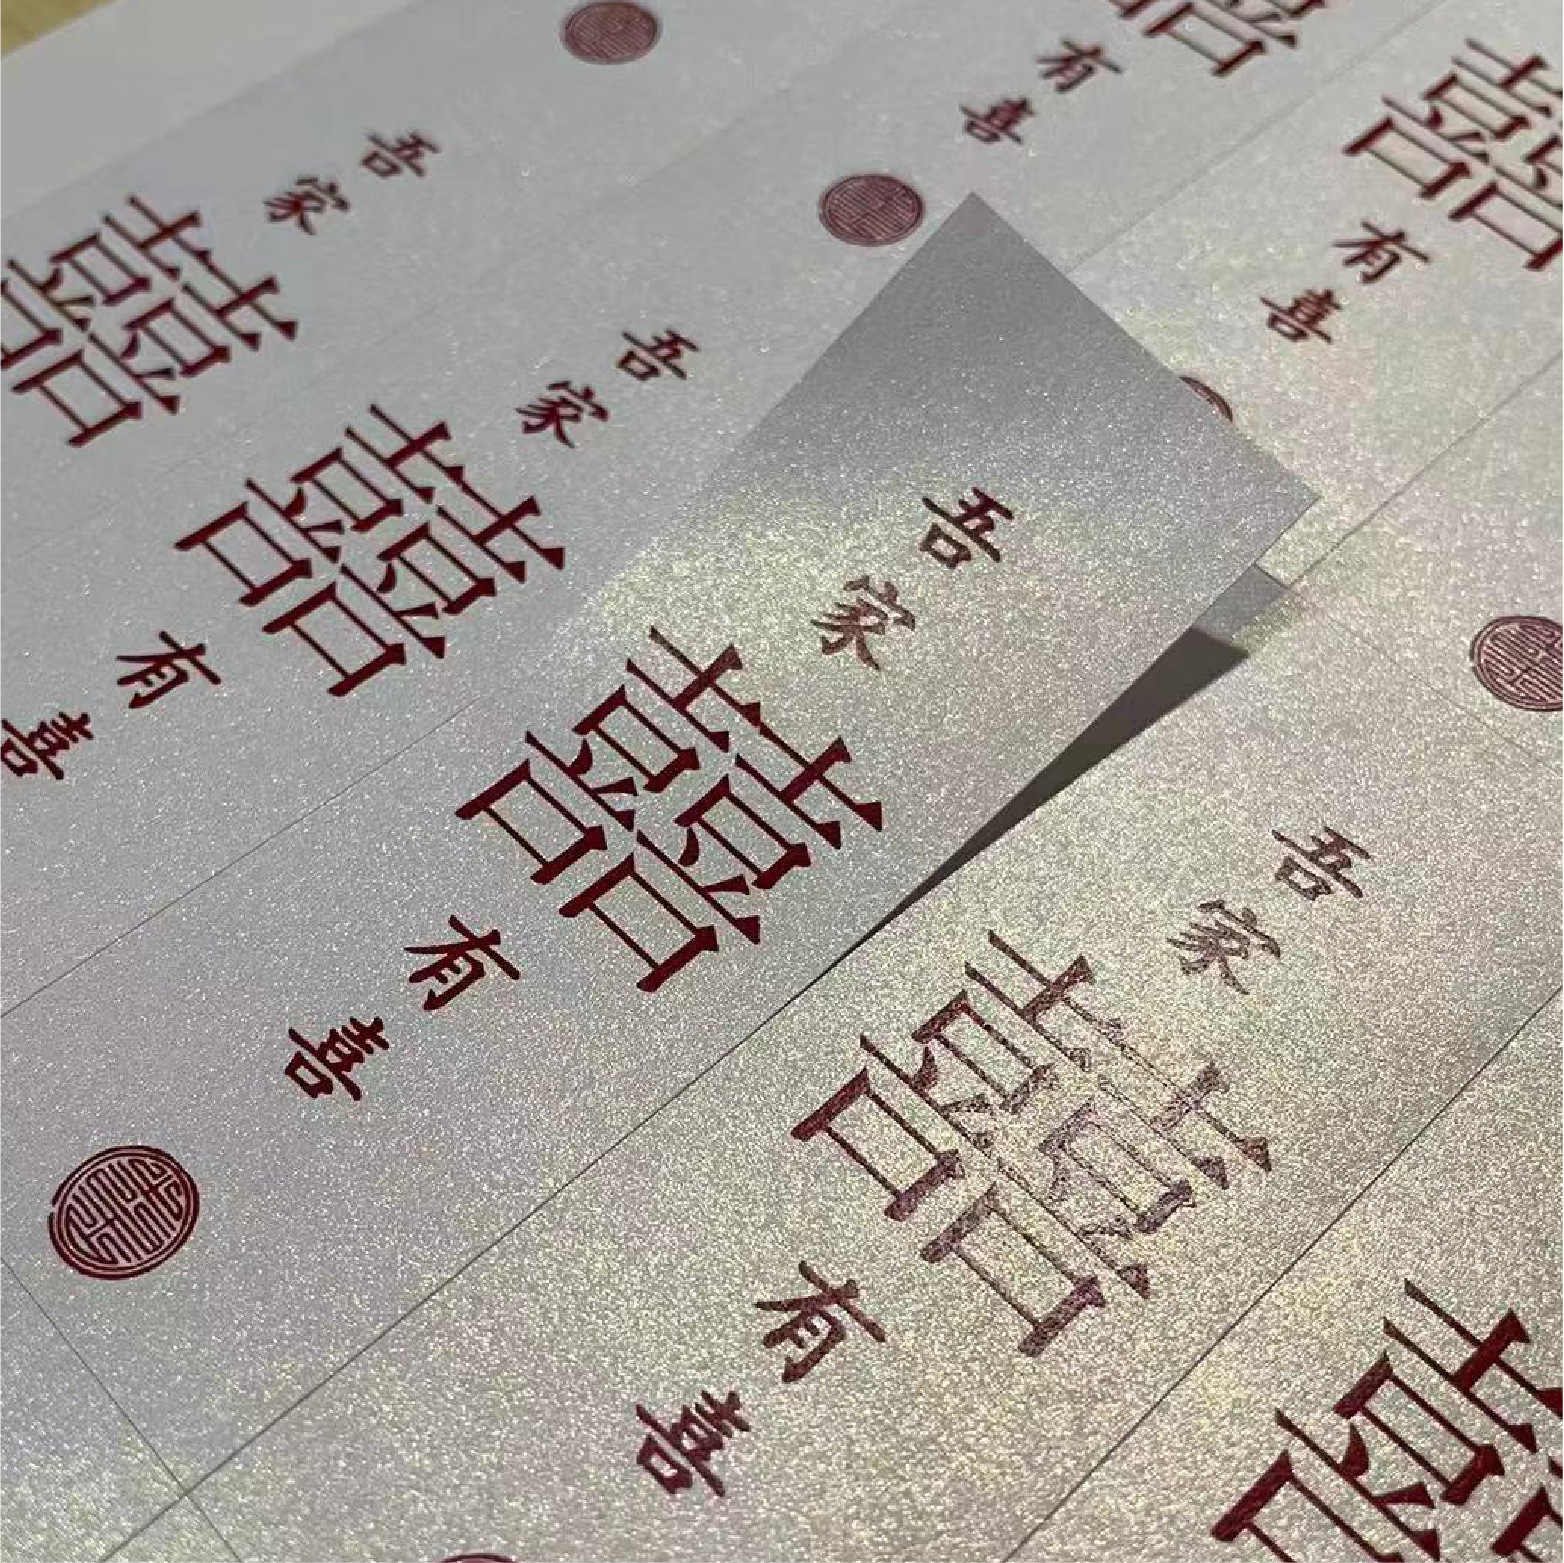 有喜
囍
有喜
吾家
囍
吾家
囍
有喜
吾家
囍
有喜
吾家
囍
有喜
囍